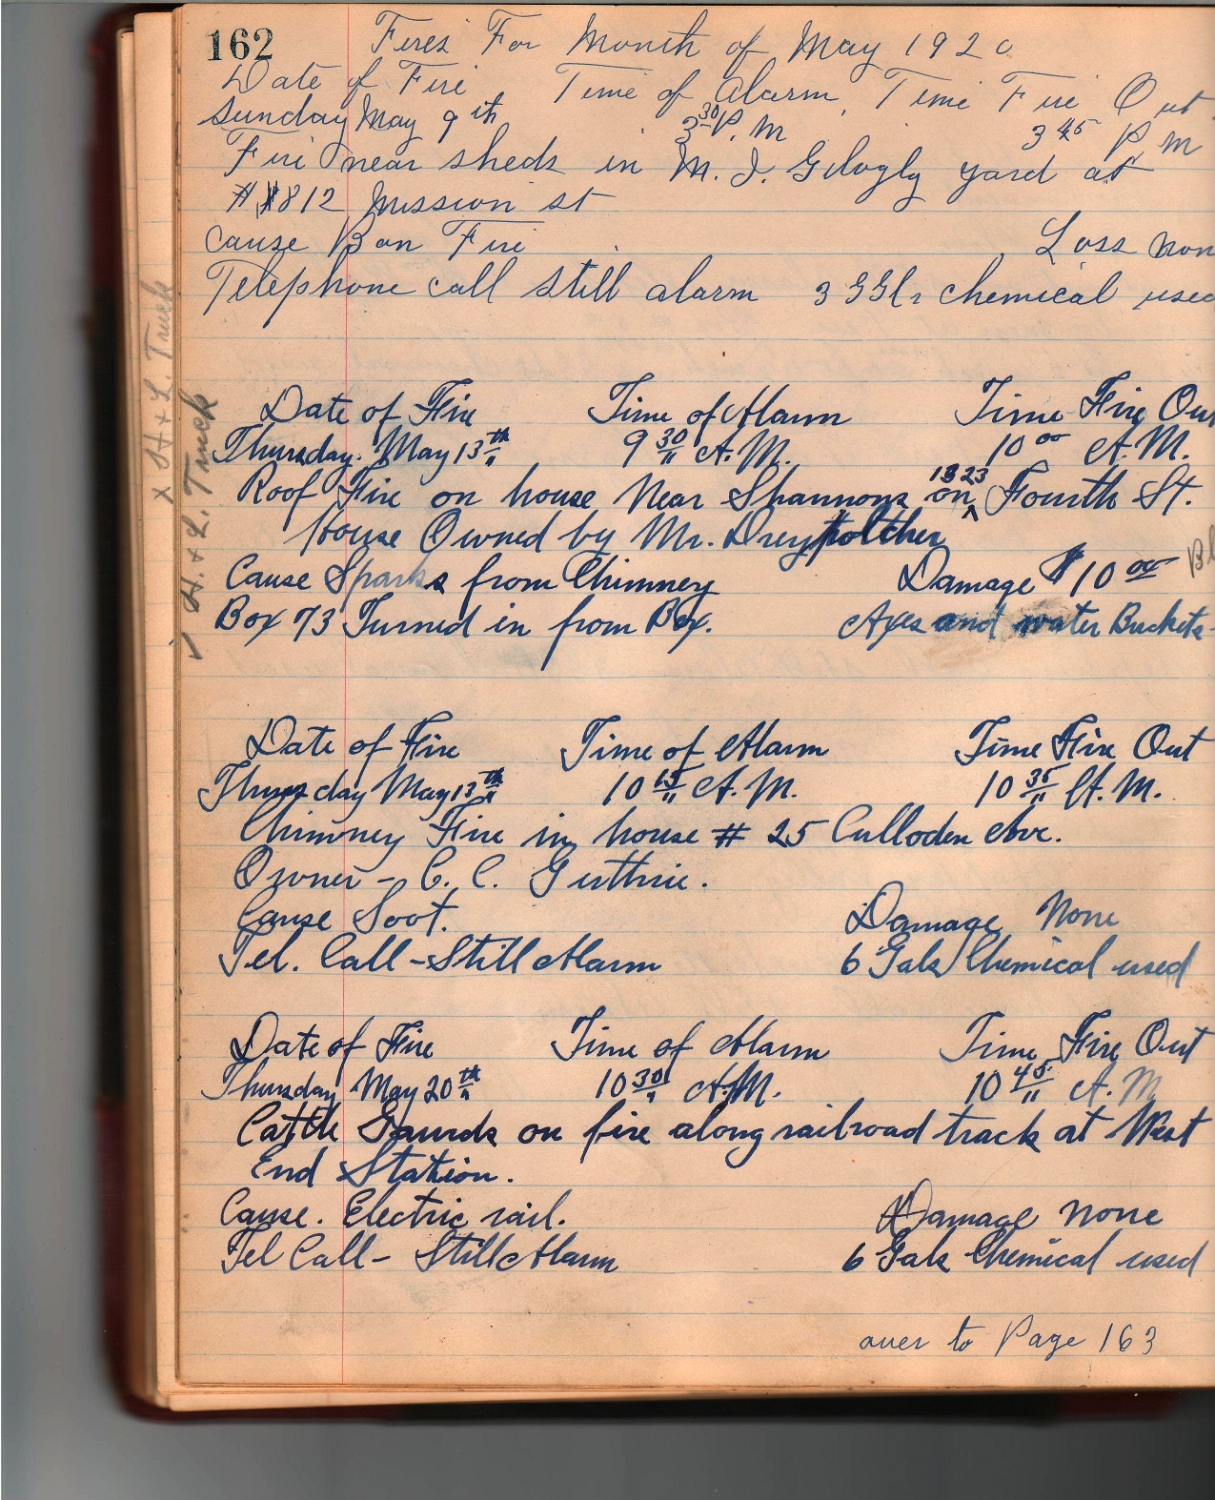 162 Fires For Month of May 1920
Date of Fire Time of Alarm Time Fire Out
Sunday May 9th 3 30 P.M 3 45 P M
Fire near sheds in M. J. Gilogly yard at
# 1812 Mission st
cause Bon Fire Loss non
Telephone call still alarm 3 GGls chemical used
Date of Fire Time of Alarm Time Fire Out
Thursday. May 13th 9 30 A.M. 10 00 A.M.
Roof Fire on house Near Shannons on 1323 Fourth St.
House Owned by Mr.
Cause Sparks from Chimney Damage $10 00
Box 73 Turned in from Box. Axes and water Buckets
Date of Fire Time of Alarm Time Fire Out
Thursday May 13th 10 15 A.M. 10 35 A.M.
Chimney Fire in house # 25 Culloden Ave.
Owner - C. C. Guthrie.
Cause Soot. Damage None
Tel. Call - Still Alarm 6 Gals Chemical used
Date of Fire Time of Alarm Time Fire Out
Thursday May 20th 10 30 A.M. 10 45 A.M
Cattle Gaurds on fire along railroad track at West
End Station.
Cause. Electric rail. Damage none
Tel Call - Still Alarm 6 Gals Chemical used
over to Page 163
x H + L. Truck
✓ H. + L. Truck